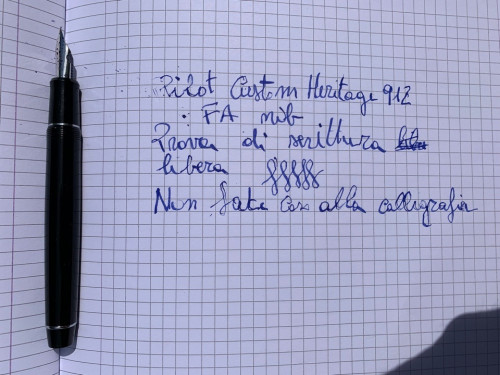 Pilot Custom Heritage 912
: FA nib
Prova di scrittura
libera
Non fate caso alla calligrafia